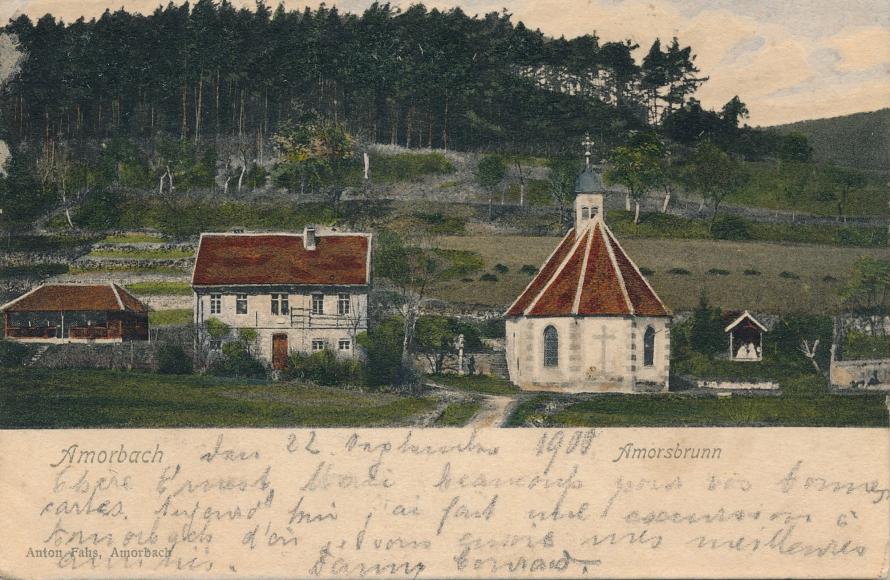 Amorbach den 22 September 190 Amorsbrunn
Chère Ernest Merci beaucoup pour vos bonnes
cartes. Aujourd'hui j'ai fait une excursion à
Amorbach d'où je vous envoie mes meilleures
Anton Fahs, Amorbach
amitiés. Fanny Conrad.